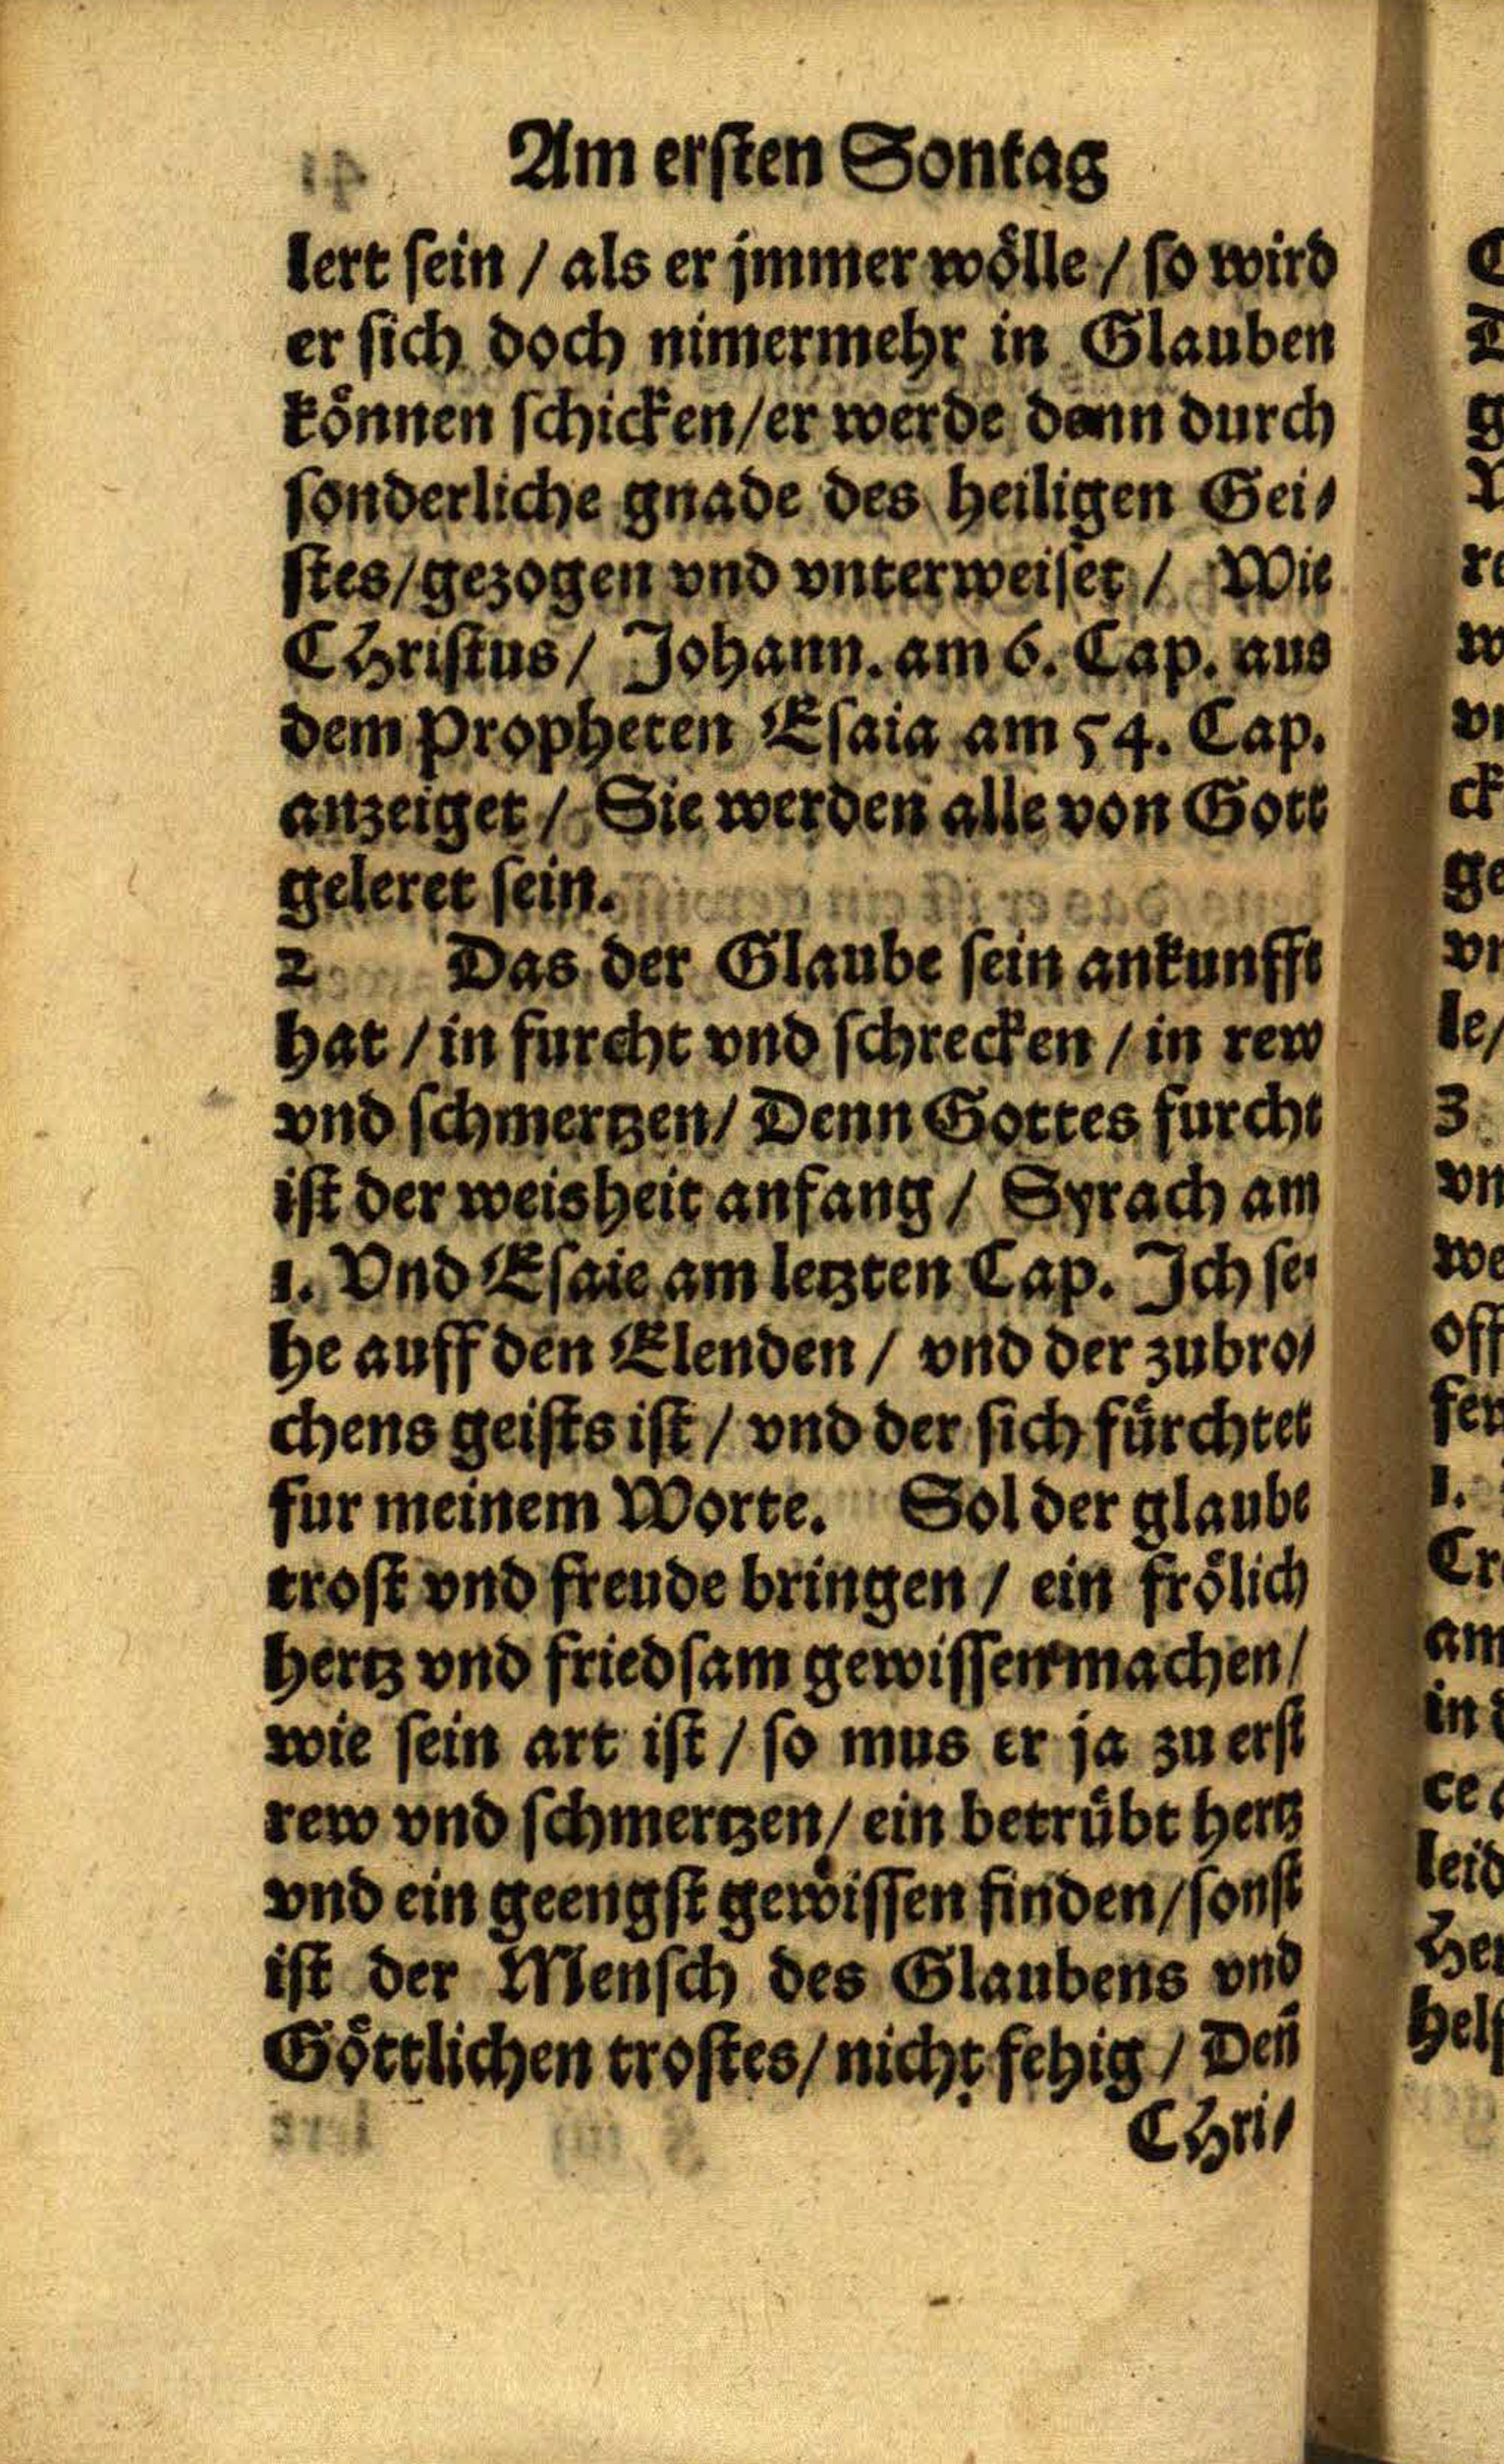 Am erſten Sontag
lert ſein / als er jmmer woͤlle / ſo wird
er ſich doch nimermehr in Glauben
koͤnnen ſchicken/er werde dann durch
ſonderliche gnade des heiligen Gei⸗
ſtes/gezogen vnd vnterweiſet / Wie
CHriſtus/ Johann. am 6. Cap. aus
dem Propheten Eſaia am 54. Cap.
anzeiget / Sie werden alle von Gott
geleret ſein.
2 Das der Glaube ſein ankunfft
hat / in furcht vnd ſchrecken / in rew
vnd ſchmertzen/ Denn Gottes furcht
iſt der weisheit anfang / Syrach am
1. Vnd Eſaie am letzten Cap. Ich ſe⸗
he auff den Elenden / vnd der zubro⸗
chens geiſts iſt / vnd der ſich fuͤrchtet
fur meinem Worte. Sol der glaube
troſt vnd freude bringen / ein froͤlich
hertz vnd friedſam gewiſſen machen/
wie ſein art iſt / ſo mus er ja zu erſt
rew vnd ſchmertzen/ ein betruͤbt hertz
vnd ein geengſt gewiſſen finden/ſonſt
iſt der Menſch des Glaubens vnd
Goͤttlichen troſtes/ nicht fehig / Deñ
CHri⸗